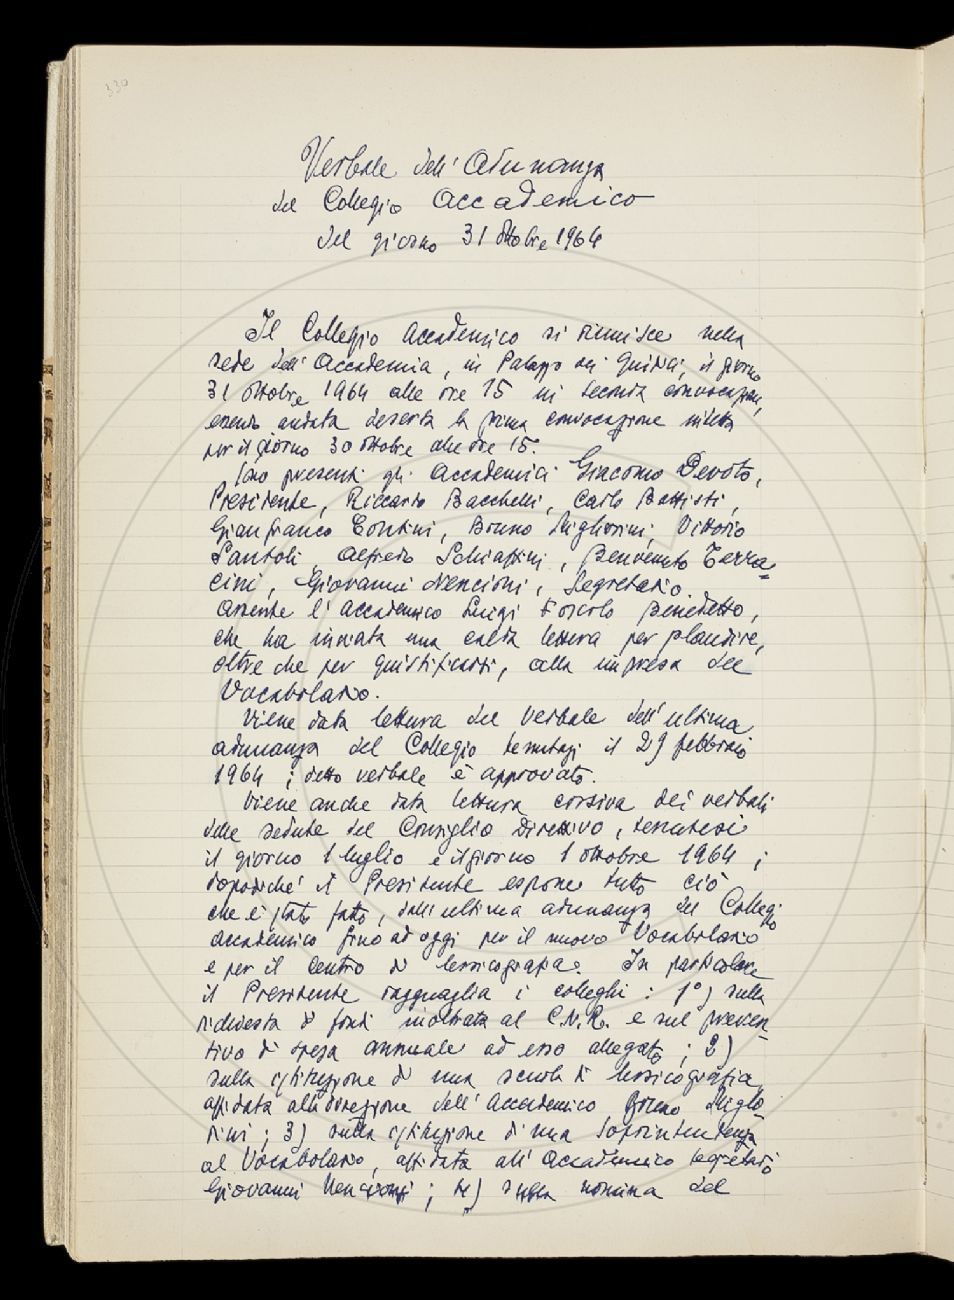 330
Verbale dell'Adunanza
del Collegio Accademico
del giorno 31 ottobre 1964
Il Collegio Accademico si riunisce nella
sede dell'Accademia, in Palazzo dei Giudici, il giorno
31 ottobre 1964 alle ore 15 in seconda convocazione,
essendo andata deserta la prima convocazione indetta
per il giorno 30 ottobre alle ore 15.
Sono presenti gli Accademici Giacomo Devoto,
Presidente, Riccardo Bacchelli, Carlo Battisti,
Gianfranco Contini, Bruno Migliorini, Vittorio
Santoli, Alfredo Schiaffini, Benvenuto Terra=
cini, Giovanni Nencioni, Segretario.
Assente l'accademico Luigi Foscolo Benedetto,
che ha inviata una calda lettera per plaudire,
oltre che per giustificarsi, alla impresa del
Vocabolario.
Viene data lettura del verbale dell'ultima
adunanza del Collegio tenutasi il 29 febbraio
1964; detto verbale è approvato.
Viene anche data lettura corsiva dei verbali
delle sedute del Consiglio Direttivo, tenutesi
il giorno 1 luglio e il giorno 1 ottobre 1964;
dopodiché il Presidente espone tutto ciò
che è stato fatto, dall'ultima adunanza del Collegio
Accademico fino ad oggi per il nuovo Vocabolario
e per il Centro di lessicografia. In particolare
il Presidente ragguaglia i colleghi: 1°) sulla
richiesta di fondi inoltrata al C.N.R. e sul preven-
tivo di spesa annuale ad esso allegato; 2)
sulla istituzione di una scuola di lessicografia,
affidata alla direzione dell'Accademico Bruno Miglio-
rini; 3) sulla istituzione di una Soprintendenza
al Vocabolario, affidata all'Accademico segretario
Giovanni Nencioni; 4) sulla nomina del